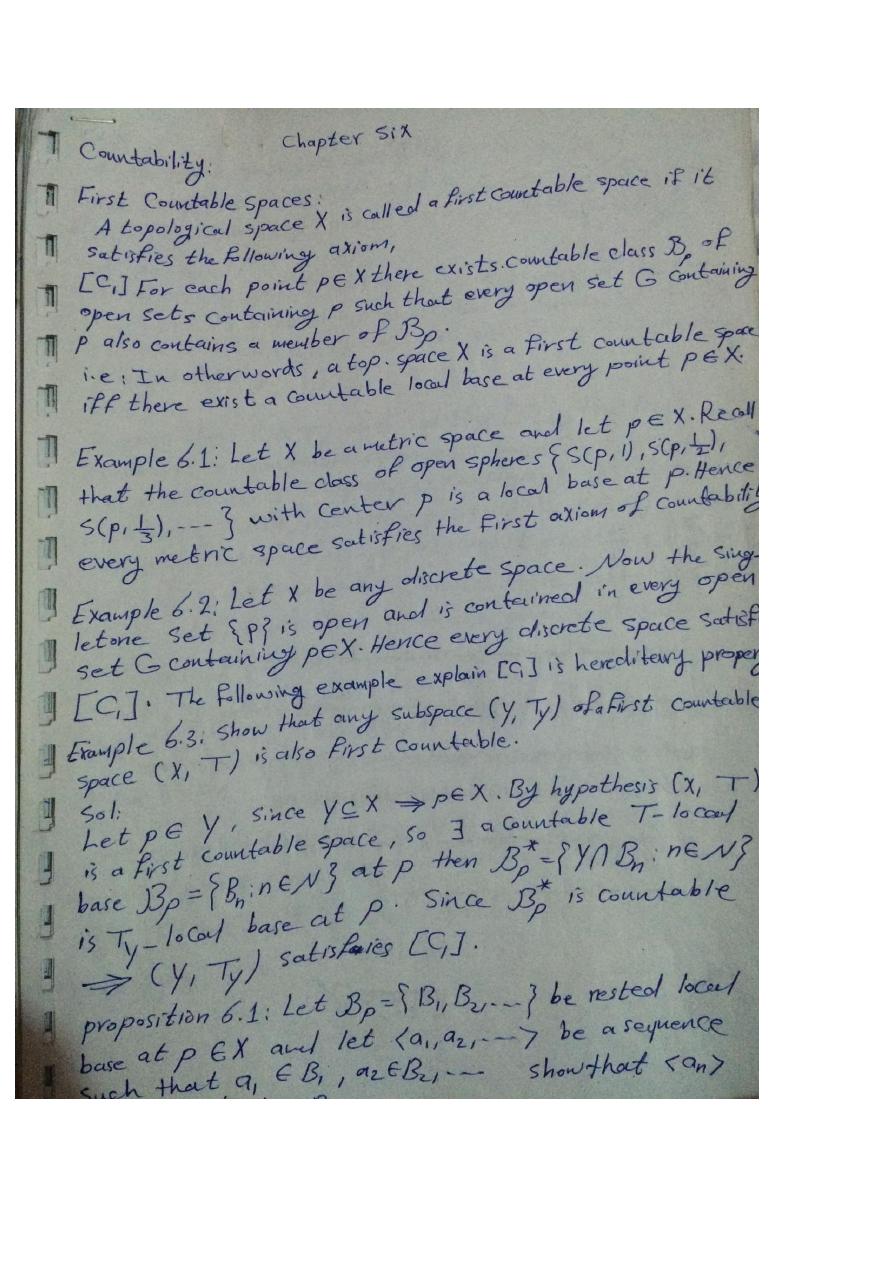 Chapter Six
Countability:
First Countable Spaces:
A topological space X is called a first countable space if it
satisfies the following axiom,
[C₁] For each point p∈X there exists countable class 𝓑ₚ of
open sets containing p such that every open set G containing
p also contains a member of 𝓑ₚ.
i.e: In otherwords, a top. space X is a first countable space
iff there exist a countable local base at every point p∈X.
Example 6.1: Let X be a metric space and let p∈X. Recall
that the countable class of open spheres {S(p,1), S(p,½),
S(p,⅓), ---} with center p is a local base at p. Hence
every metric space satisfies the First axiom of Countability
Example 6.2: Let X be any discrete space. Now the sing-
letone set {p} is open and is contained in every open
set G containing p∈X. Hence every discrete space satisf
[C₁]. The following example explain [C₁] is hereditary proper
Example 6.3: Show that any subspace (Y, Tᵧ) of a first countable
space (X, T) is also first countable.
Sol:
Let p∈ Y, since Y⊆X ⇒ p∈X. By hypothesis (X, T)
is a first countable space, so ∃ a countable T-local
base 𝓑ₚ = {Bₙ : n∈N} at p then 𝓑ₚ* = {Y∩Bₙ : n∈N}
is Tᵧ-local base at p. Since 𝓑ₚ* is countable
⇒ (Y, Tᵧ) satisfies [C₁].
proposition 6.1: Let 𝓑ₚ = {B₁, B₂, ---} be rested local
base at p ∈X and let <a₁, a₂, ---> be a sequence
such that a₁ ∈ B₁, a₂∈B₂, --- show that <aₙ>